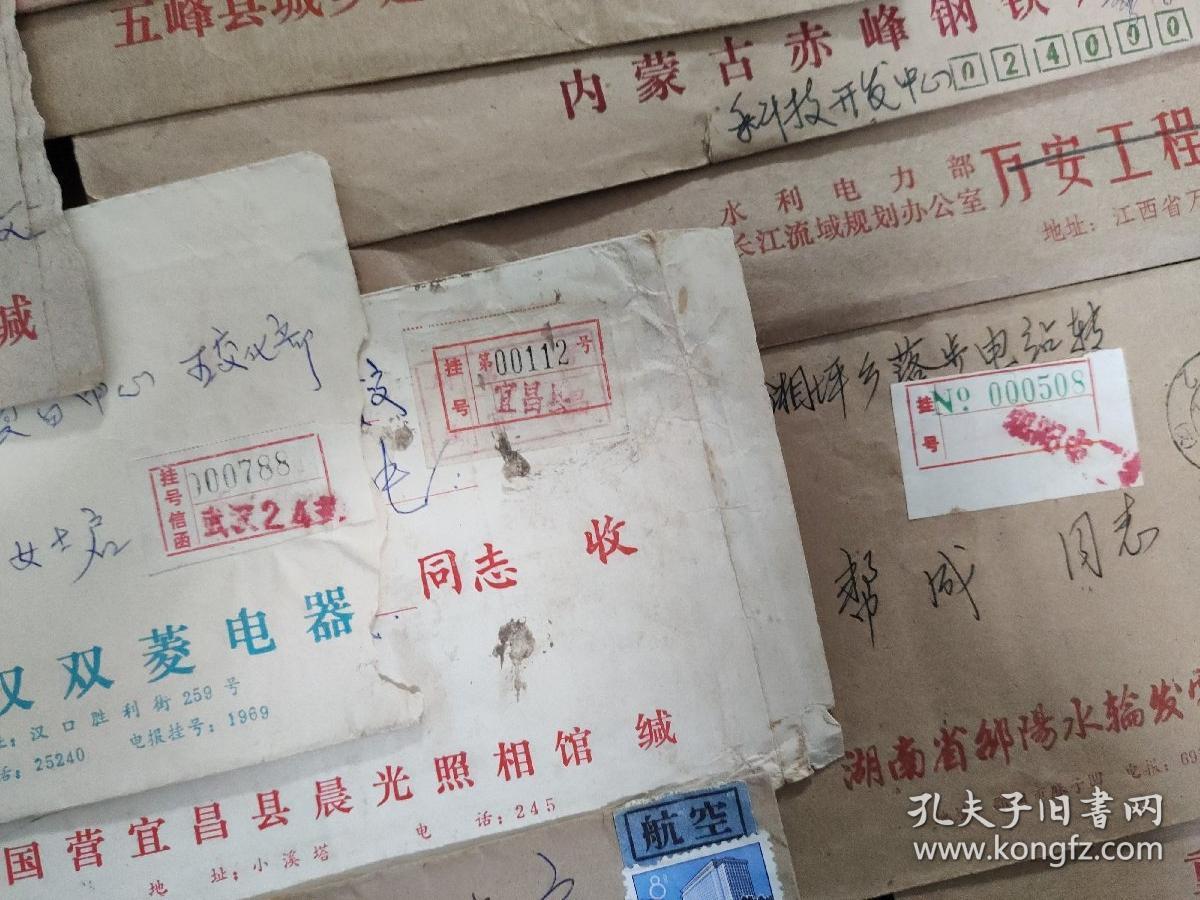 五峰县城乡建
内蒙古赤峰钢铁
科技开发中心
024000
水利电力部
长江流域规划办公室
万安工程
地址：江西省万
缄
五交化部
挂号信函
000788
武汉24支
女士启
汉双菱电器
址：汉口胜利街259号
话：25240 电报挂号：1969
挂号
第00112号
宜昌县
同志 收
国营宜昌县晨光照相馆 缄
地 址：小溪塔 电 话：245
航空
8分
湘坪乡落步电站转
挂号
No 000508
帮成 同志
湖南省邵陽水輪发電
孔夫子旧书网
www.kongfz.com